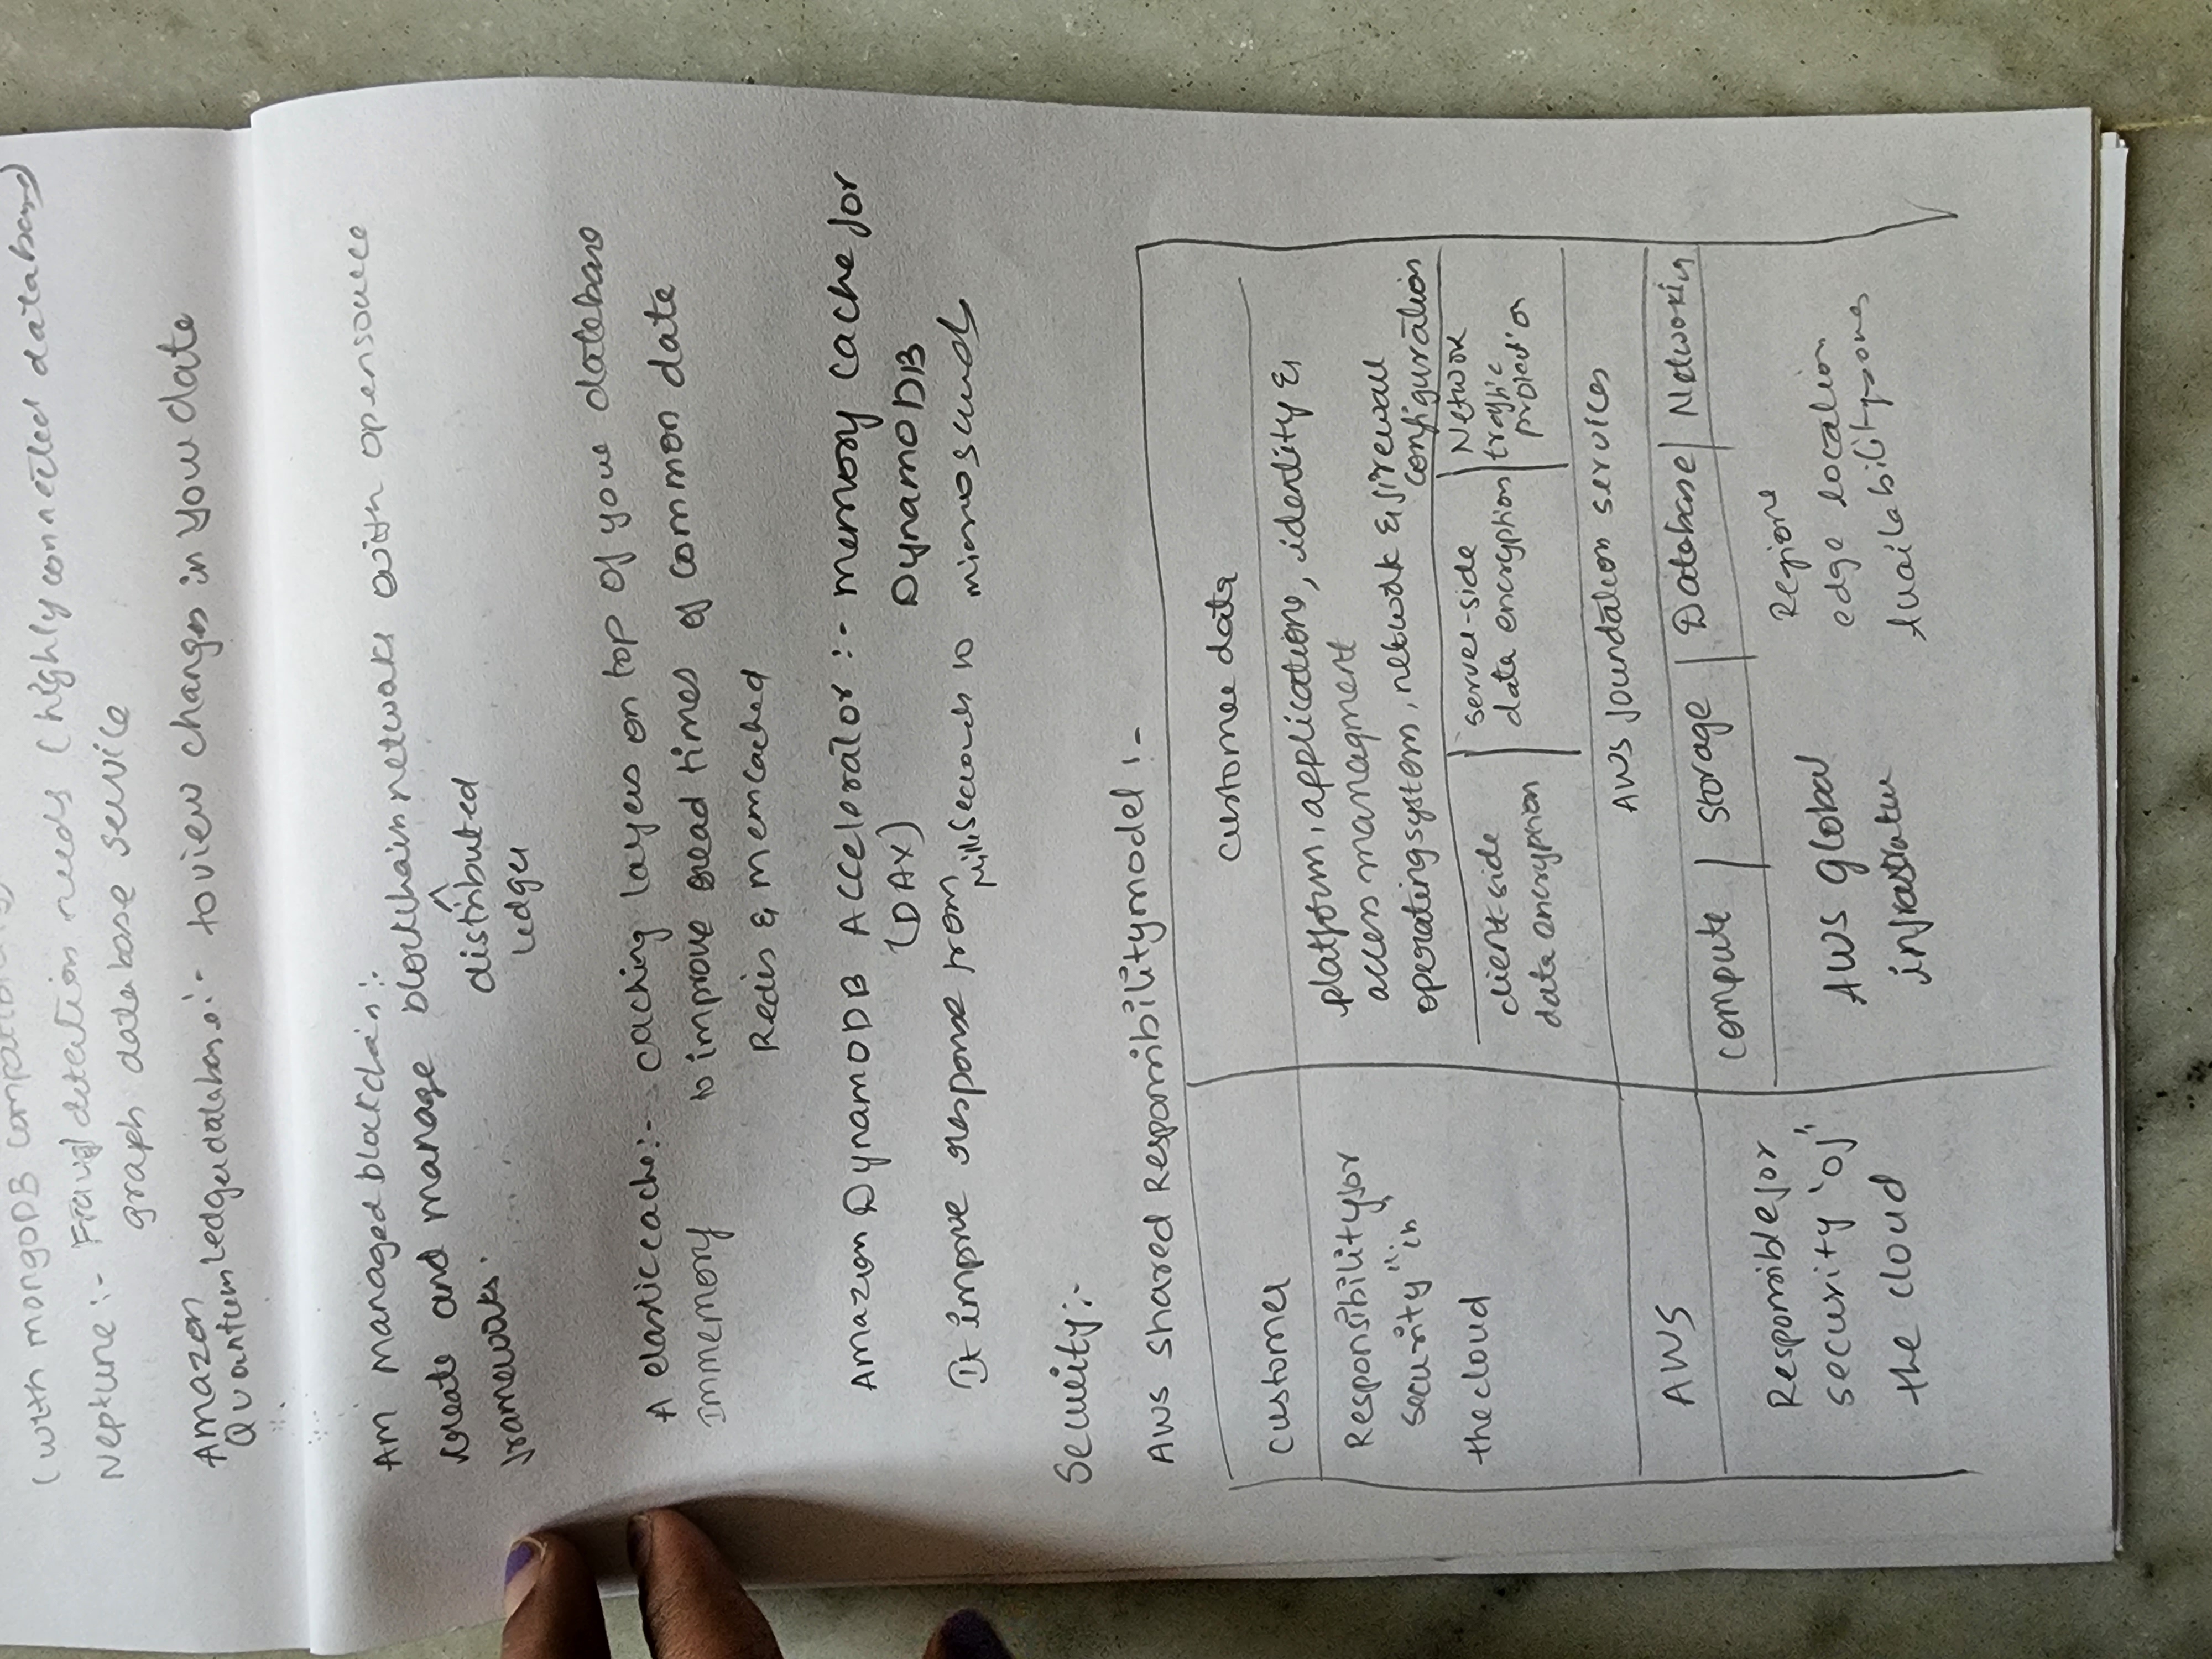 (with mongoDB compatibility)
Neptune :- Fraud detection needs (highly connected databases)
graph database service
Amazon
Quantum Ledger database :- to view changes in your data
AM managed blockchain :-
create and manage blockchain networks with opensource
frameworks.
distributed
ledger
A elastic cache :- caching layers on top of your database
Immemory to improve read times of common data
Redis & memcached
Amazion DynamoDB Accelerator :- memory cache for
(DAX) DynamoDB
It imprve response from milliseconds to microseconds
Security :-
AWS shared Responsibility model :-
customer data
customer
platform, applications, identity &
access managment
Responsibility for
security "in"
the cloud
operating system, network & firewall
configuration
client-side
data encryption
server-side
data encryption
Network
traffic
protection
AWS foundation services
AWS
compute | storage | Database | Networking
Responsible for
security 'of'
the cloud
AWS global
infrastratue
Regions
edge location
Availability zones